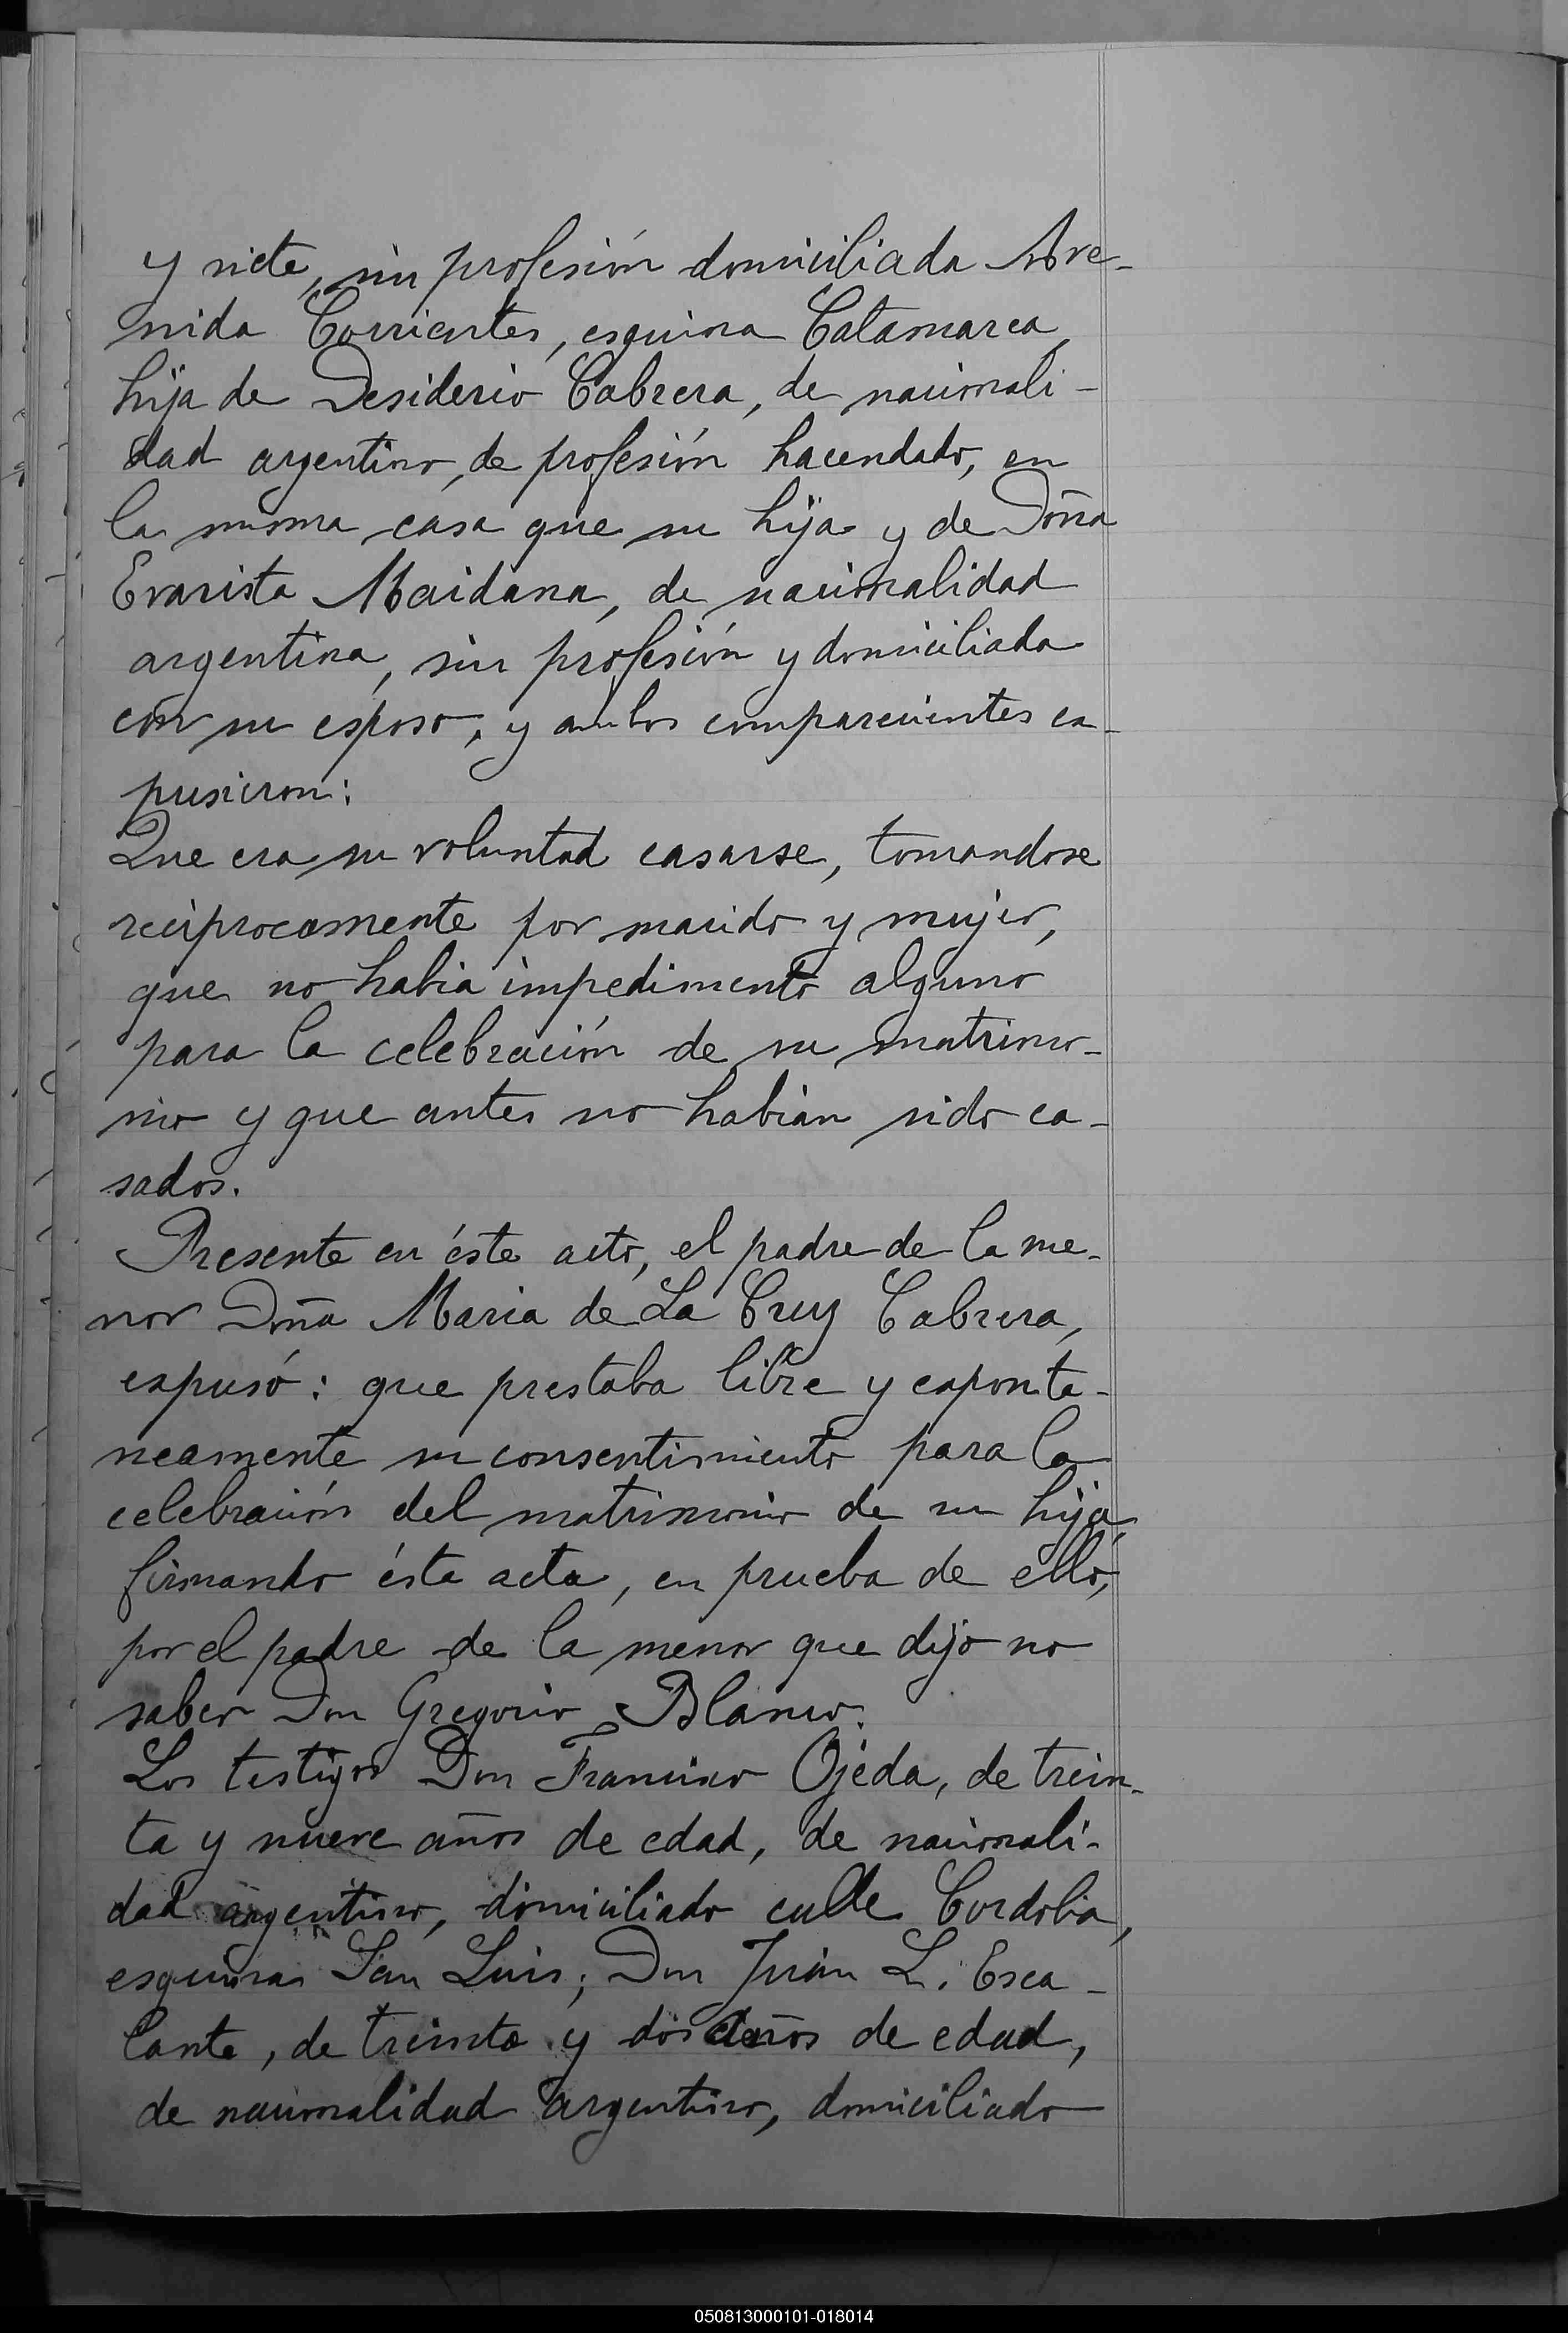 y siete, sin profesión domiciliada Ave-
nida Corrientes, esquina Catamarca,
hija de Desiderio Cabrera, de nacionali-
dad argentino, de profesión hacendado, en
la misma casa que su hija y de Doña
Evarista Maidana, de nacionalidad
argentina, sin profesión y domiciliada
con su esposo, y ambos comparecientes es-
pusieron:
Que era su voluntad casarse, tomandose
reciprocamente por marido y mujer,
que no habia impedimento alguno
para la celebración de su matrimo-
nio y que antes no habian sido ca-
sados.
Presente en éste acto, el padre de la me-
nor Doña Maria de La Cruz Cabrera,
espusó: que prestaba libre y esponta-
neamente su consentimiento para la
celebración del matrimonio de su hija,
firmando ésta acta, en prueba de ello,
por el padre de la menor que dijo no
saber Don Gregorio Blanco.
Los testigos Don Francisco Ojeda, de trein-
ta y nueve años de edad, de nacionali-
dad argentino, domiciliado calle Cordoba,
esquina San Luis; Don Juan L. Esca-
lante, de treinta y dos años de edad,
de nacionalidad argentino, domiciliado
050813000101-018014